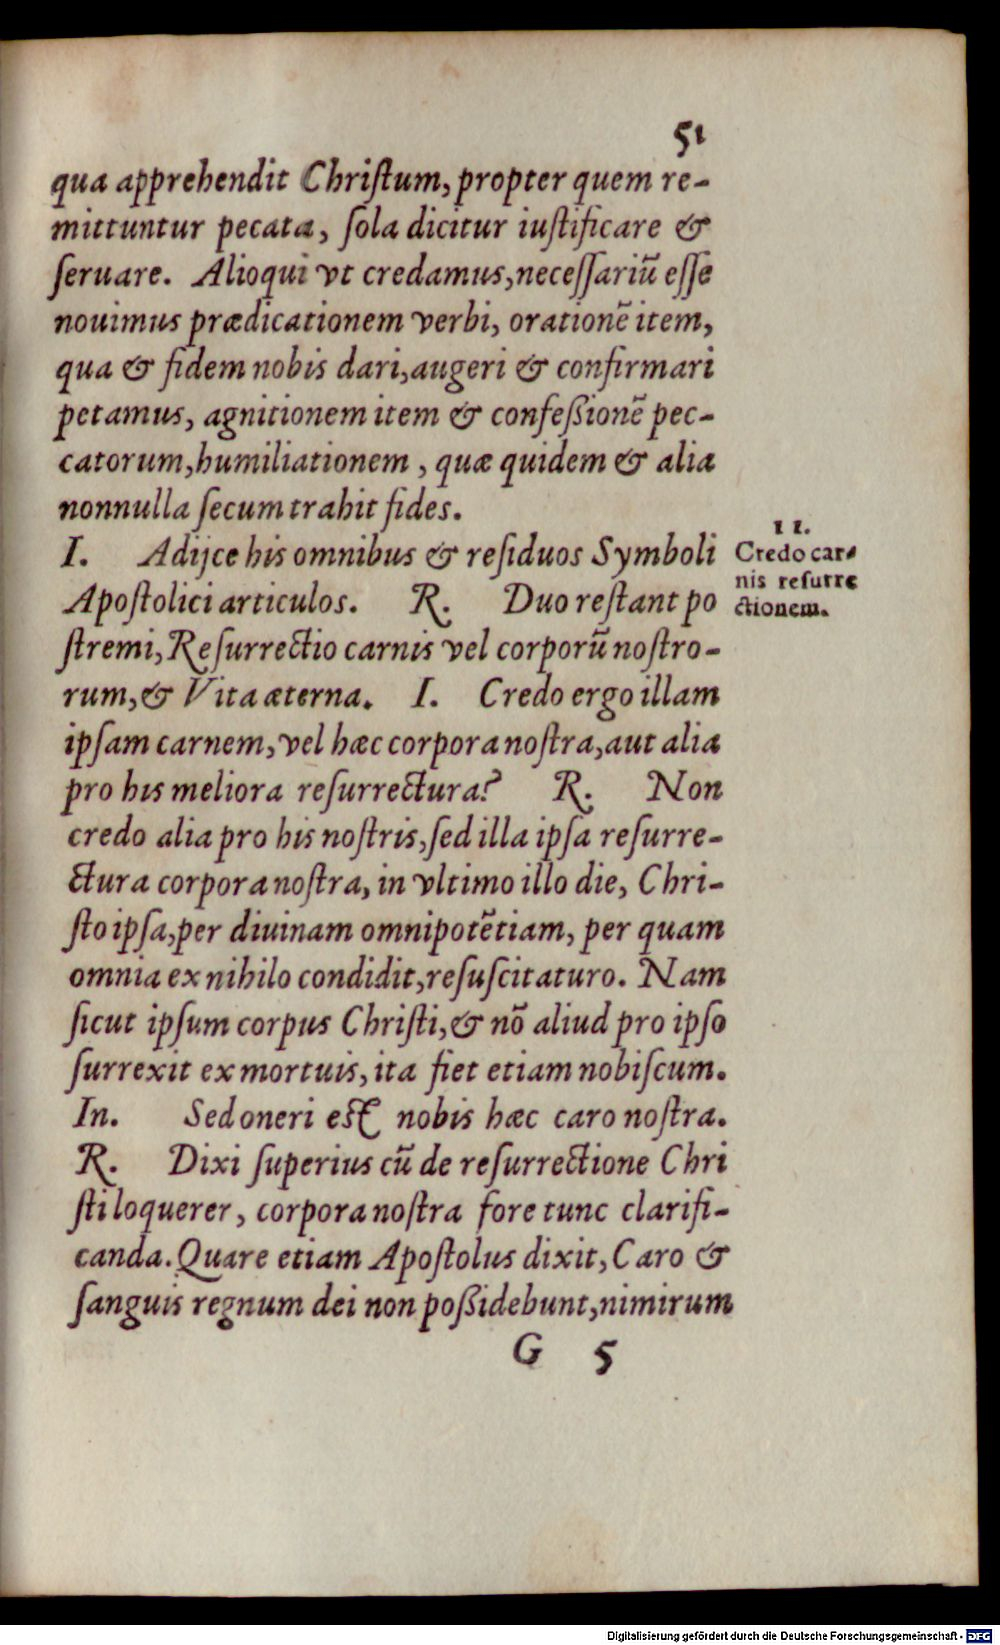 51
qua apprehendit Chriſtum, propter quem re-
mittuntur pecata, ſola dicitur iuſtificare &
ſeruare. Alioqui vt credamus, neceſſariũ eſſe
nouimus prædicationem verbi, orationẽ item,
qua & fidem nobis dari, augeri & confirmari
petamus, agnitionem item & confeßionẽ pec-
catorum, humiliationem, quæ quidem & alia
nonnulla ſecum trahit fides.
I. Adijce his omnibus & reſiduos Symboli
Apoſtolici articulos. R. Duo reſtant po
ſtremi, Reſurrectio carnis vel corporũ noſtro-
rum, & Vita æterna. I. Credo ergo illam
ipſam carnem, vel hæc corpora noſtra, aut alia
pro his meliora reſurrectura? R. Non
credo alia pro his noſtris, ſed illa ipſa reſurre-
ctura corpora noſtra, in vltimo illo die, Chri-
ſto ipſa, per diuinam omnipotẽtiam, per quam
omnia ex nihilo condidit, reſuſcitaturo. Nam
ſicut ipſum corpus Chriſti, & nõ aliud pro ipſo
ſurrexit ex mortuis, ita fiet etiam nobiſcum.
In. Sed oneri eſt nobis hæc caro noſtra.
R. Dixi ſuperius cũ de reſurrectione Chri
ſti loquerer, corpora noſtra fore tunc clarifi-
canda. Quare etiam Apoſtolus dixit, Caro &
ſanguis regnum dei non poßidebunt, nimirum
G 5
11.
Credo car-
nis reſurre
ctionem.
Digitalisierung gefördert durch die Deutsche Forschungsgemeinschaft - DFG